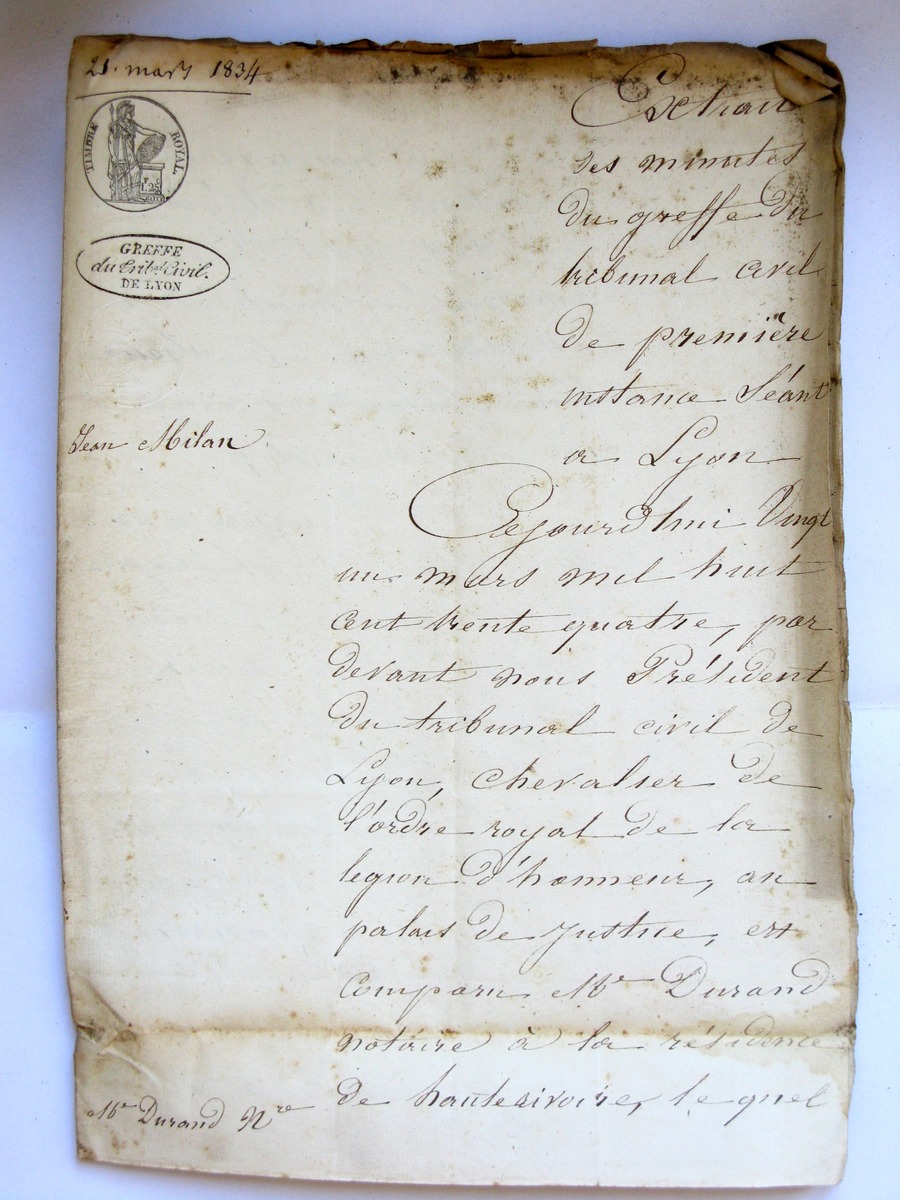 21. mars 1834
TIMBRE ROYAL
F. C.
1.25
GREFFE
du Tribal Civil.
DE LYON
Extrait
des minutes
du greffe du
tribunal civil
de première
instance séant
a Lyon
Jean Milan
Cejourd'hui Vingt
un mars mil huit
cent trente quatre, par
devant nous Président
du tribunal civil de
Lyon, chevalier de
l'ordre royal de la
legion d'honneur, au
palais de justice, est
comparu Me Durand
notaire à la résidence
de hauterivoire, le quel
Me Durand Nre